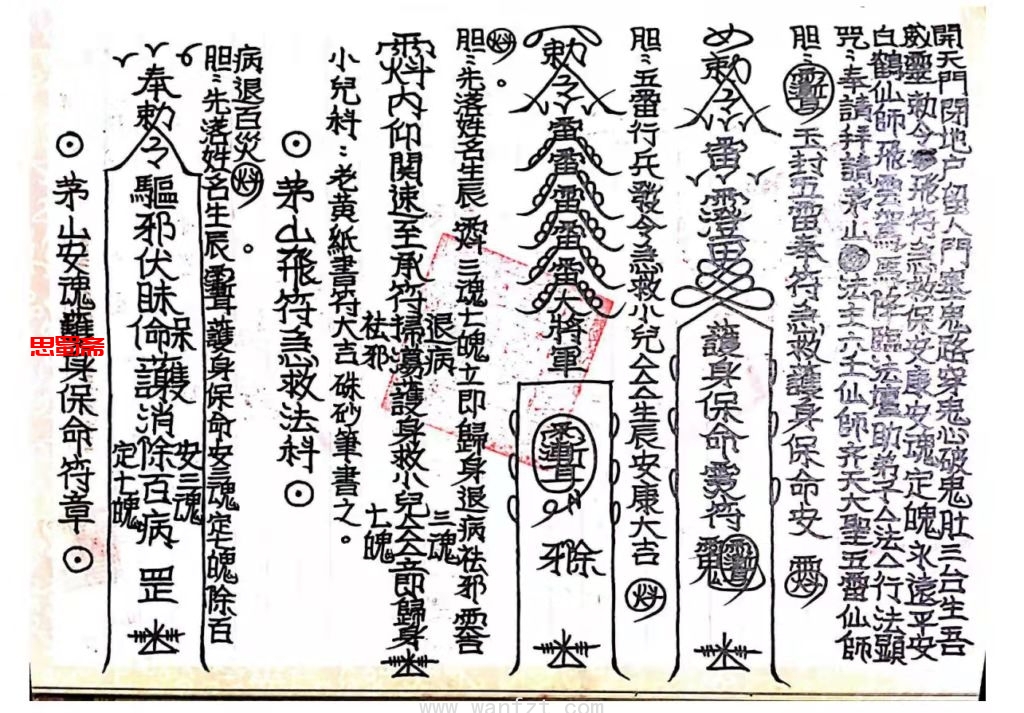 茅山安魂護身保命符章
奉勅令驅邪伏昧命護消除百病罡
保
安三魂
定七魄
胆:先落姓名生辰護身保命安三魂定七魄除百
病退百災。
茅山飛符急救法科
小兒科:老黃紙書符大吉硃砂筆書之。
内仰関速至承符掃蕩護身救小兒仝仝立即歸身
退病
祛邪
三魂
七魄
胆:先落姓名生辰三魂七魄立即歸身退病祛邪
。
勅令雷雷雷雷雷大將軍
除
胆:五雷行兵發令急救小兒仝仝生辰安康大吉
勅令雷
護身保命靈符
胆:玉封五雷奉符急救護身保命安
咒:奉請拜請茅山法主六壬仙師齐天大聖五雷仙師
白鶴仙師飛雲駕馬降臨法壇助弟子仝法仝行法顯
威靈勅令飛符急救保安康安魂定魄永遠平安
開天門閉地户留人門塞鬼路穿鬼心破鬼肚三台生吾
思蜀斋
www.wanfzf.com